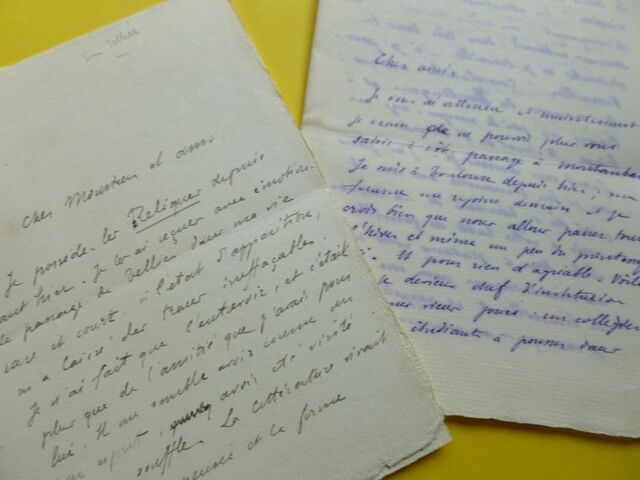 Cher Monsieur et ami,
Je possède les Reliques depuis
avant hier. Je les ai reçues avec émotion.
Le passage de Tellier dans ma vie
rare et court à l'état d'apparition,
m'a laissé des traces ineffaçables
Je n'ai fait que l'entrevoir, et c'était
plus que de l'amitié que j'avais pour
lui. Il me semble avoir comme un
esprit, avoir été visité
souffle. La littérature vivait
pensée et la forme
Cher ami,
Je vous ai attendu et maintenant
je crains de ne pouvoir plus vous
saisir à votre passage à Montauban
Je suis à Toulouse depuis hier; ma
femme me rejoint demain et je
crois bien que nous allons passer tout
l'hiver et même un peu du printemps
Et pour rien d'agréable. Voilà
devenir chef d'institution
mes vieux jours. un collégien
étudiants à pousser dans